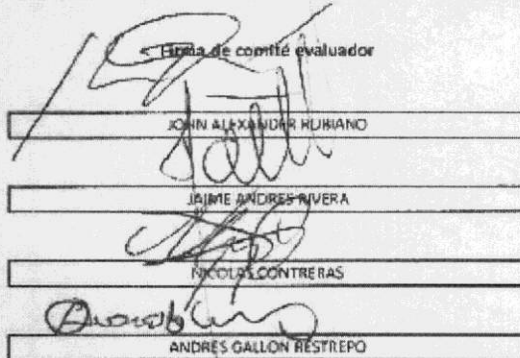 Firma de comité evaluador
JOHN ALEXANDER RUBIANO
JAIME ANDRES RIVERA
NICOLAS CONTRERAS
ANDRES GALLON RESTREPO